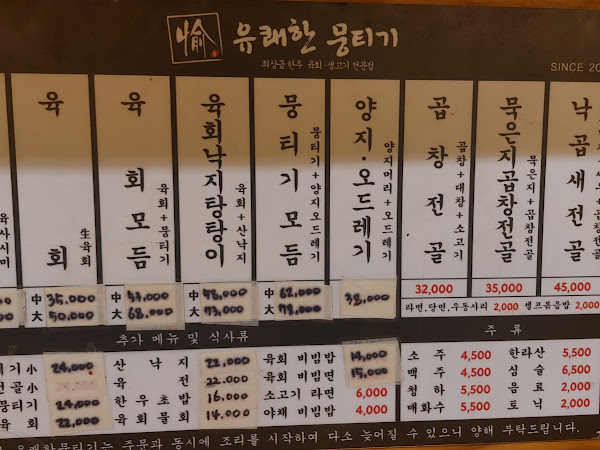 愉 유쾌한 뭉티기
최상급 한우 육회·생고기 전문점
SINCE 20
육사시미
육회
生육회
中 35,000
大 50,000
육회모듬
육회+뭉티기
中 53,000
大 68,000
육회낙지탕탕이
육회+산낙지
中 58,000
大 73,000
뭉티기모듬
뭉티기+양지오드레기
中 62,000
大 78,000
양지·오드레기
양지머리+오드레기
38,000
곱창전골
곱창+대창+소고기
32,000
묵은지곱창전골
묵은지+곱창전골
35,000
낙곱새전골
45,000
라면,당면,우동사리 2,000 셀프볶음밥 2,000
추가 메뉴 및 식사류
티기 小 24,000
전골 小
뭉티기 24,000
육회 22,000
산낙지 22,000
육전 22,000
한우초밥 16,000
육회물회 14,000
육회 비빔밥 14,000
육회 비빔면 15,000
소고기 라면 6,000
야채 비빔밥 4,000
주류
소주 4,500 한라산 5,500
맥주 4,500 심술 6,500
청하 5,500 음료 2,000
매화수 5,500 토닉 2,000
유쾌한뭉티기는 주문과 동시에 조리를 시작하여 다소 늦어질 수 있으니 양해 부탁드립니다.